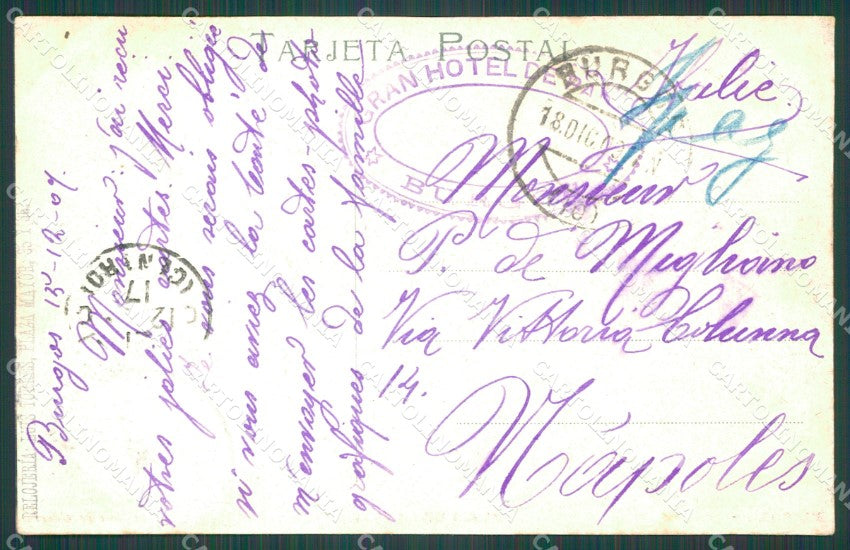 TARJETA POSTAL
GRAN HOTEL DE
BURG
18.DIC
Italie
Monsieur
P. de Migliano
Via Vittoria Colonna
14.
Nápoles
Burgos 15-12-09.
Monsieur: j'ai reçu
votres jolies cartes. Merci.
Je vous serais obligé
si vous aviez la bonté de
m'envoyer les cartes-photo
grafiques de la famille
17
12
RELOJERIA
PLAZA MAYOR,
CARTOLINOMANIA